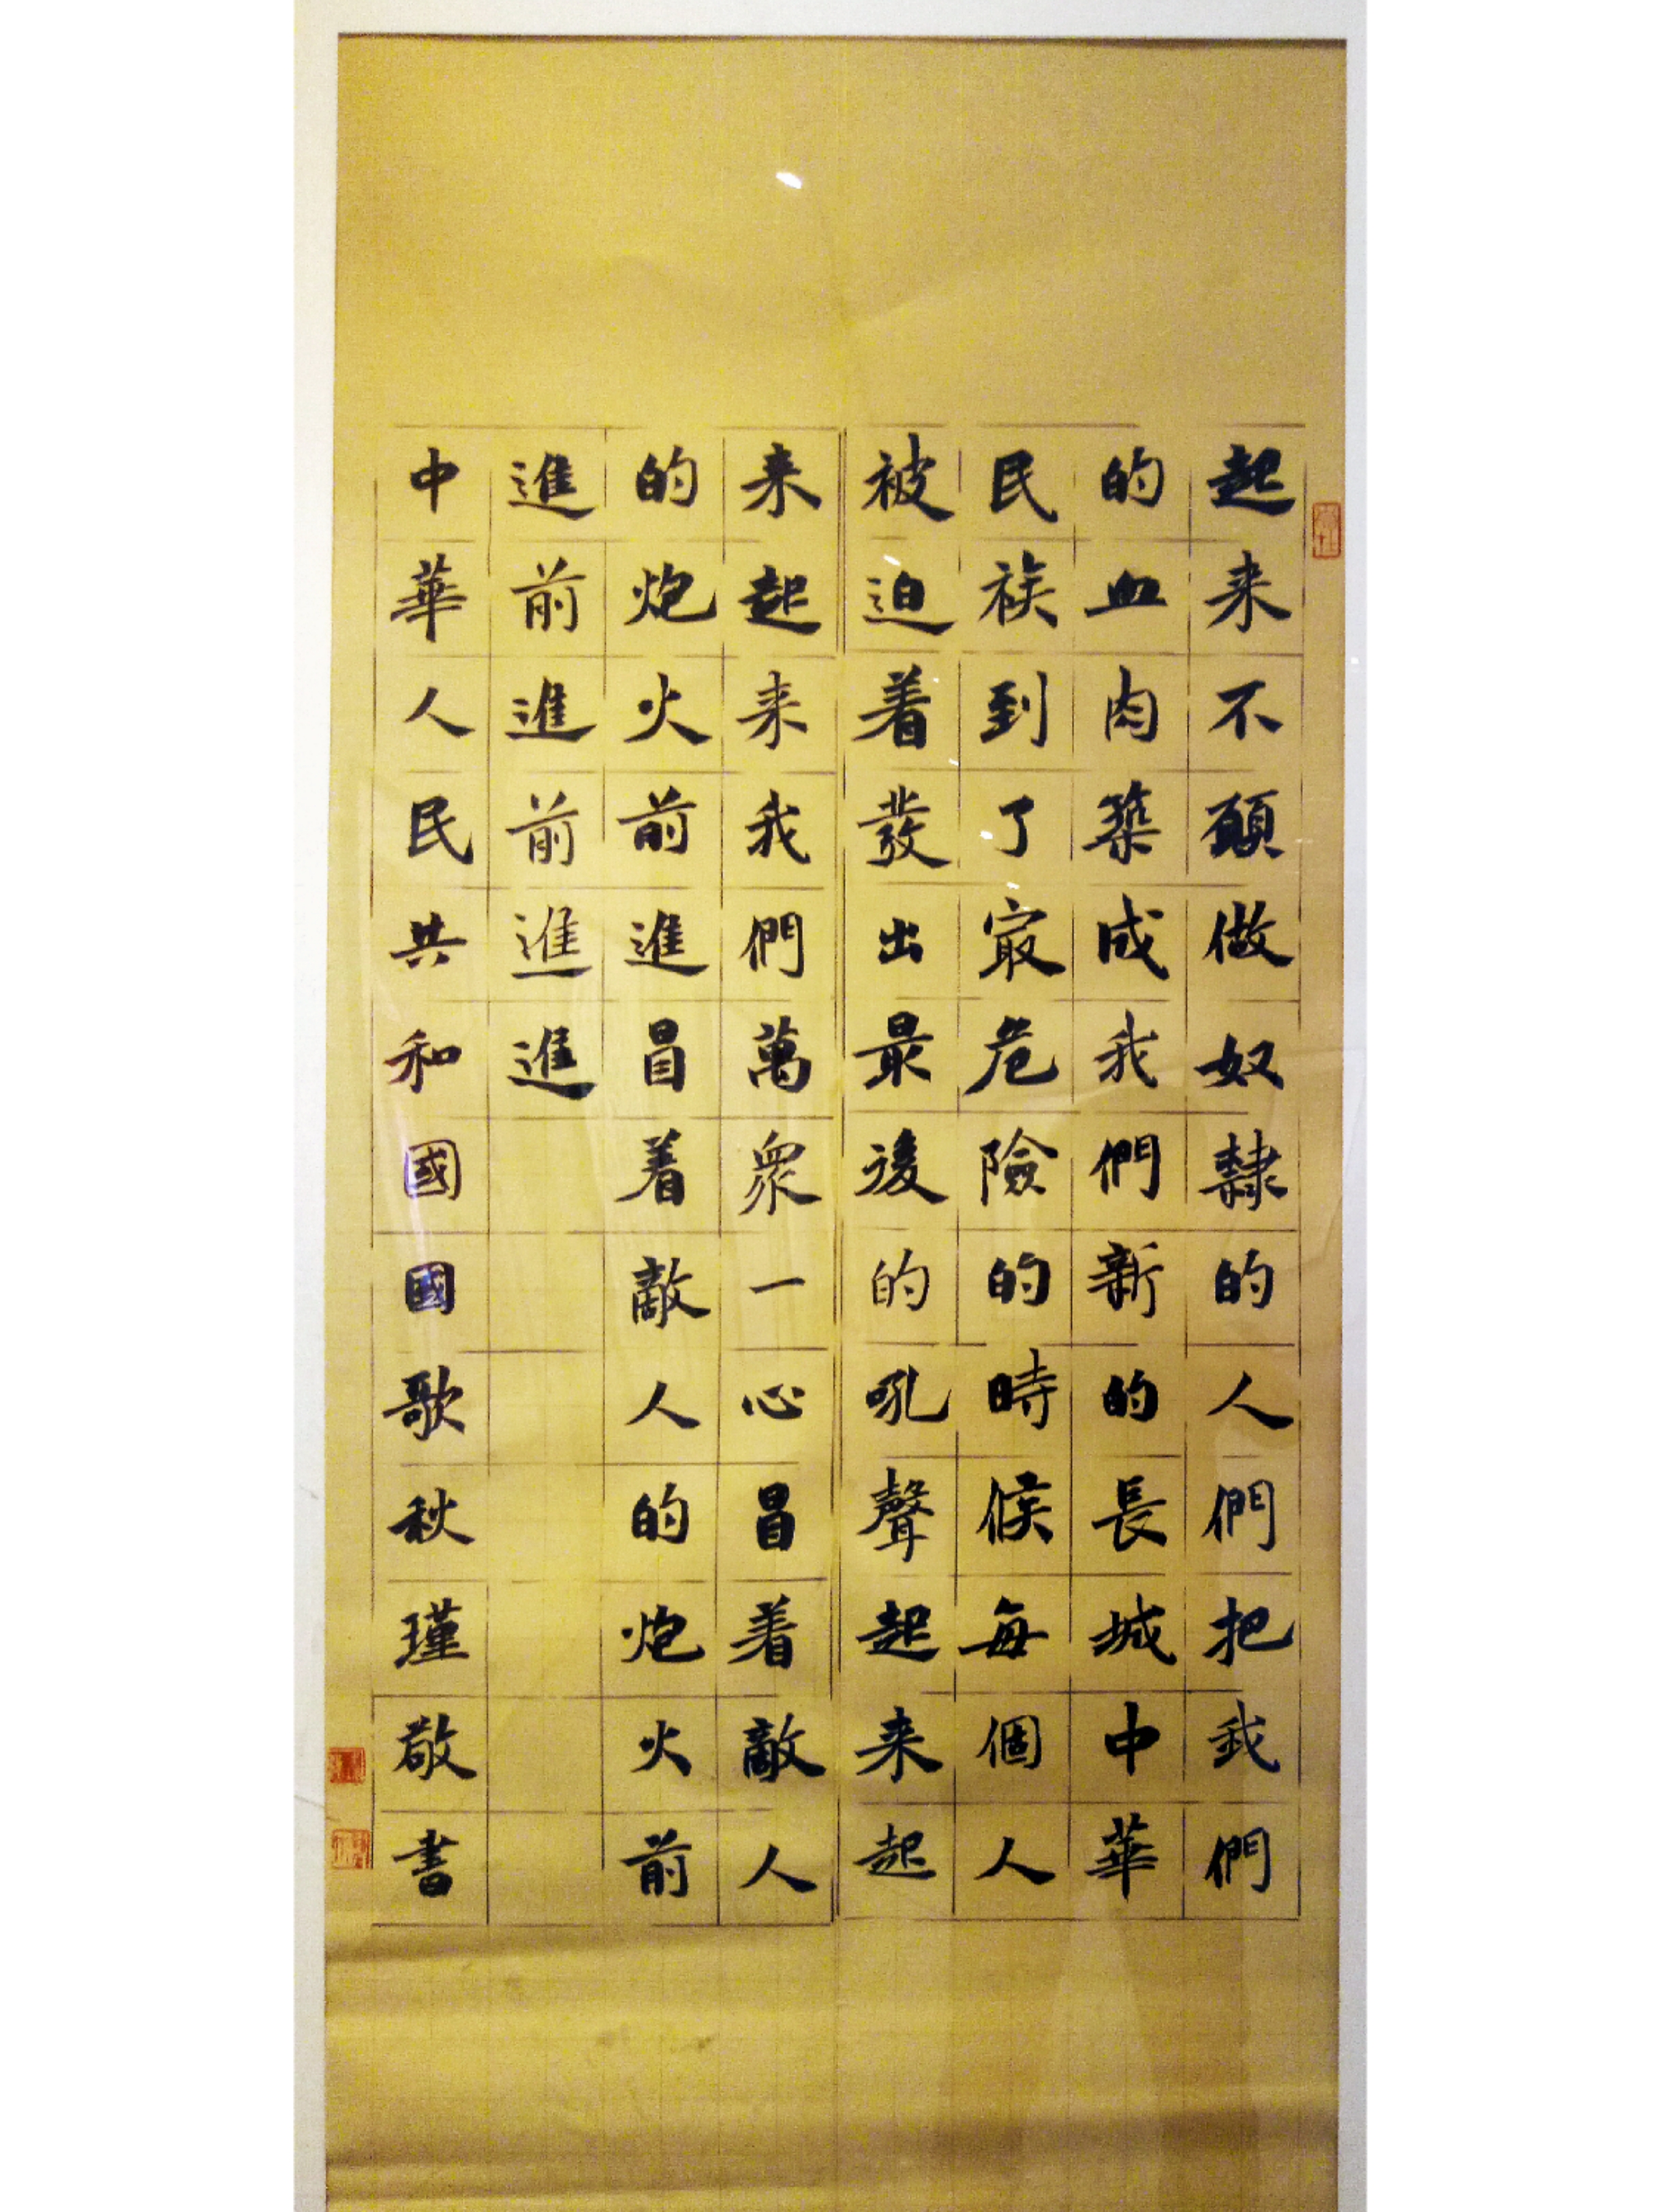 起来不願做奴隸的人們把我們
的血肉築成我們新的長城中華
民族到了冣危險的時候每個人
被迫着發出最後的吼聲起来起
来起来我們萬眾一心冒着敵人
的炮火前進冒着敵人的炮火前
進前進前進進
中華人民共和國國歌秋瑾敬書